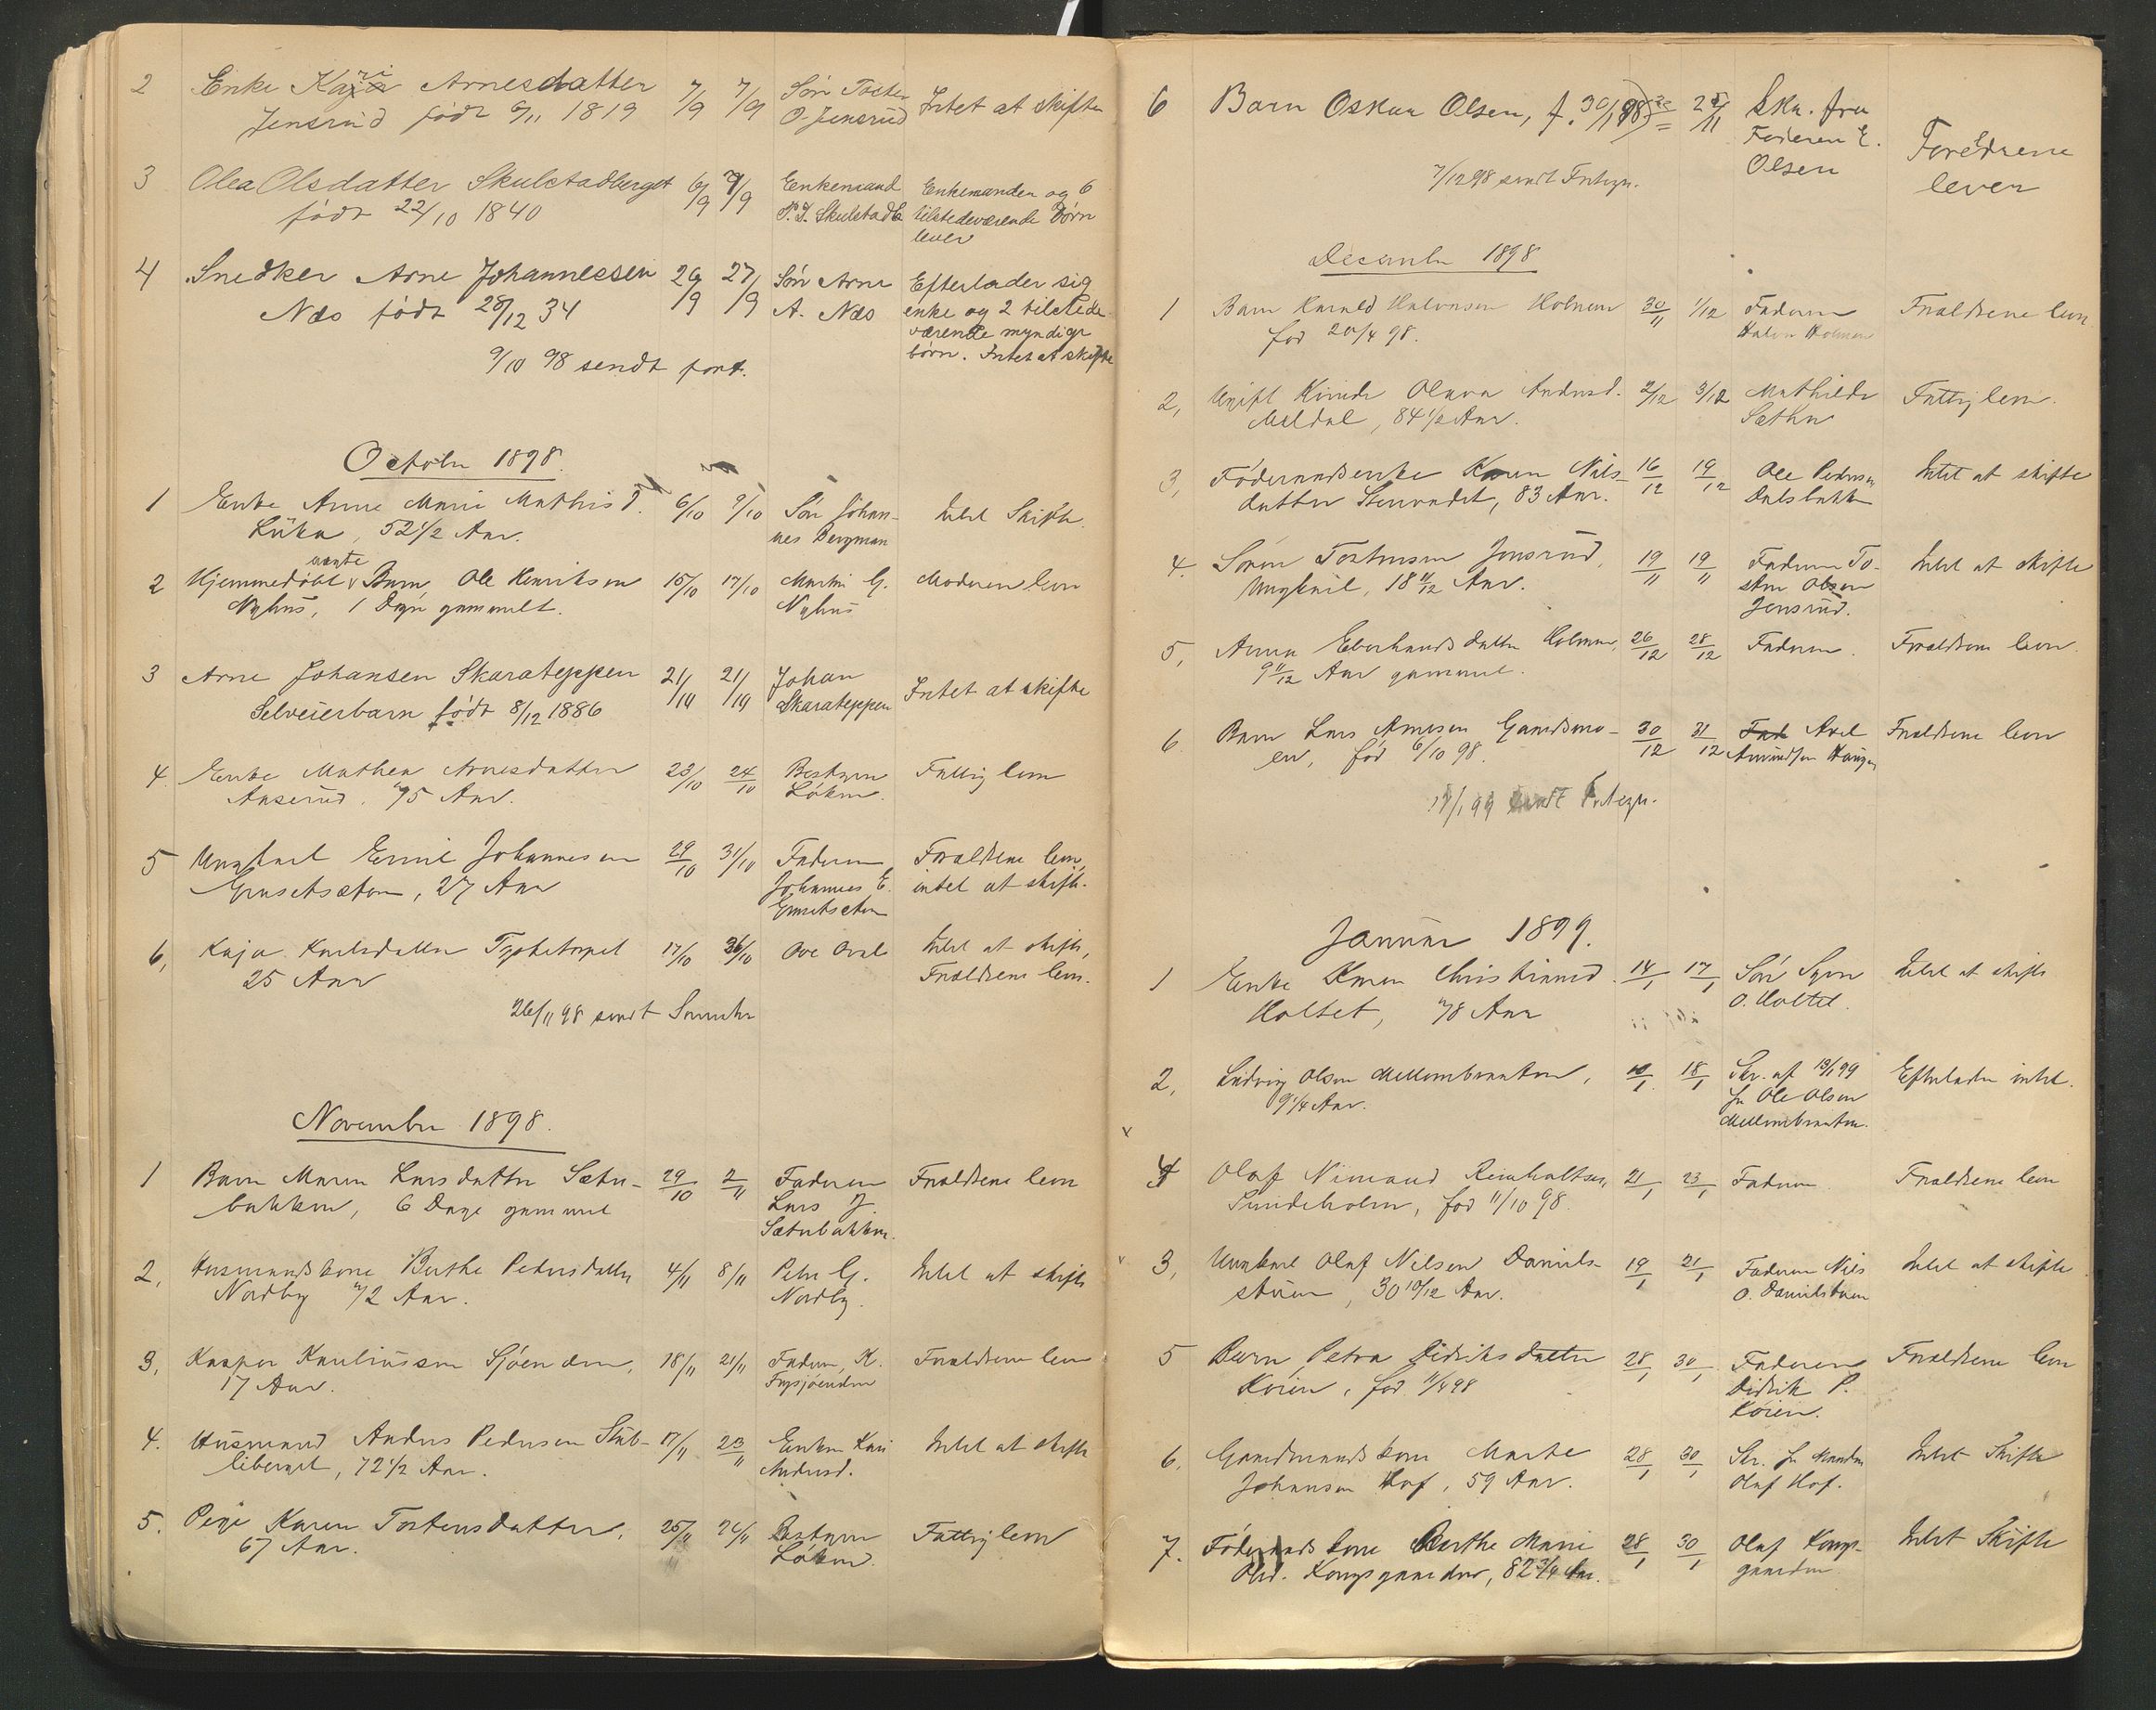 2 Enke Kari Arnesdatter 7/9 7/9 Søn Tosten Intet at skifte
Jensrud født 9/11 1819 O. Jensrud
3 Olea Olsdatter Skulstadberget 6/9 7/9 Eenkemand Enkemanden og 6
født 22/10 1840 P. J. Skulstadb. tilstedeværende Børn
lever
4 Snedker Arne Johannessen 26/9 27/9 Søn Arne Efterlader sig
Næs født 28/12 34 A. Næs enke og 2 tilstede-
værende myndige
børn. Intet at skifte
9/10 98 sendt fort.
October 1898.
1 Enke Anne Marie Mathisd. 6/10 9/10 Søn Johan- Intet Skifte
Lüka, 52 1/2 Aar. nes Bergman
2 Hjemmedøbt ægte Barn, Ole Henriksen 15/10 17/10 Martin G. Moderen lever
Nyhus, 1 Dag gammelt. Nyhus
3 Arne Johansen Skarateppen 21/10 21/10 Johan Intet at skifte
Selveierbarn født 8/12 1886 Skarateppen
4. Enke Mathea Arnesdatter 23/10 24/10 Bestyrer Fattiglem
Aaserud, 75 Aar. Løken.
5 Ungkarl Emil Johannesen 29/10 31/10 Faderen Forældrene lever,
Grusetsæteren, 27 Aar Johannes E. intet at skifte.
Grusetsæteren
6, Kaja Karlsdatter Tysketorpet 17/10 Ove Oval Intet at skifte,
25 Aar Forældrene lever.
26/11 98 sendt
November 1898.
1 Barn Maren Larsdatter Sæter- 29/10 2/11 Faderen Forældrene lever
bakken, 6 Dage gammel Lars J.
Sæterbakken.
2, Husmandskone Berthe Pedersdatter 4/11 8/11 Peder G. Intet at skifte
Nordby 72 Aar. Nordby.
3, Kaspar Karliussen Sjøenden, 18/11 21/11 Faderen, K. Forældrene lever
17 Aar. Frysjøenden
4. Husmand Anders Pedersen Stub- 17/11 23/11 Enken Kari Intet at skifte
liberget, 72 1/2 Aar. Andersd.
5. Pige Karen Tostensdatter, 25/11 26/11 Bestyrer Fattiglem
67 Aar. Løken.
6 Barn Oskar Olsen, f. 30/1 98 25/11 Skr. fra Forældrene
Faderen E. lever
Olsen
7/12 98 sendt Fortegn.
December 1898
1 Barn Harald Halvorsen Holmen 30/11 1/12 Faderen Forældrene lever
fød 20/4 98. Halvor Holmen
2, Ugift Kvinde Olava Andersd. 2/12 3/12 Mathilde Fattiglem.
Meldal, 84 1/2 Aar. Sæther
3, Føderaadsenke Karen Nils- 16/12 19/12 Ole Pedersen Intet at skifte
datter Stenvadet, 83 Aar. Dalsbakken
4. Søren Tostensen Jensrud, 19/11 19/11 Faderen To- Intet at skifte
Ungkarl, 18 11/12 Aar. sten Olsen
Jensrud.
5, Anna Eberhardsdatter Holmen, 26/12 28/12 Faderen. Forældrene lever.
9 11/12 Aar gammel.
6. Barn Lars Arnesen Gaardsmo- 30/12 31/12 Axel Forældrene lever
en, fød 6/10 98. Amundsen Haugen
17/1 99 sendt Fortegn.
Januar 1899.
1 Enke Karen Christiansd. 14/1 17/1 Søn Syver Intet at skifte
Holtet, 78 Aar O. Holtet.
2, Ludvig Olsen Mellembraaten, 10/1 18/1 Skr. af 13/1 99 Efterlader intet.
9 1/4 Aar. fr Ole Olsen
Mellembraaten.
4 Olaf Nimand Reinholtsen, 21/1 23/1 Faderen Forældrene lever
Sundeholm, fød 11/10 98.
3, Ungkarl Olaf Nilsen Daniels- 19/1 21/1 Faderen Nils Intet at skifte
stuen, 30 10/12 Aar. O. Danielstuen
5 Barn Petra Didriksdatter 28/1 30/1 Faderen Forældrene lever
Køien, fød 11/4 98 Didrik P.
Køien.
6, Gaardmandskone Marte 28/1 30/1 Skr. fr Manden Intet Skifte
Johansen Hof, 59 Aar. Olaf Hof.
7. Føderaadskone Berthe Marie 28/1 30/1 Olaf Kongs- Intet Skifte
Olsd. Kongsgaarden, 82 3/4 Aar. gaarden